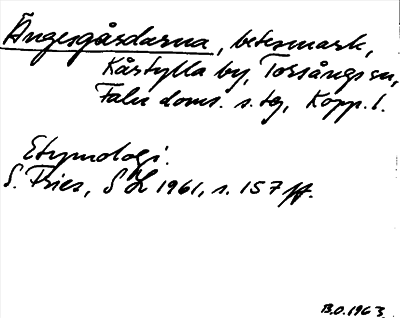 Ängesgårdarna, betesmark,
Kårtylla by, Torsångs sn,
Falu doms. s. tg, Kopp. l.
Etymologi.
S. Fries, SL 1961, s. 157 ff.
B.O. 1963.